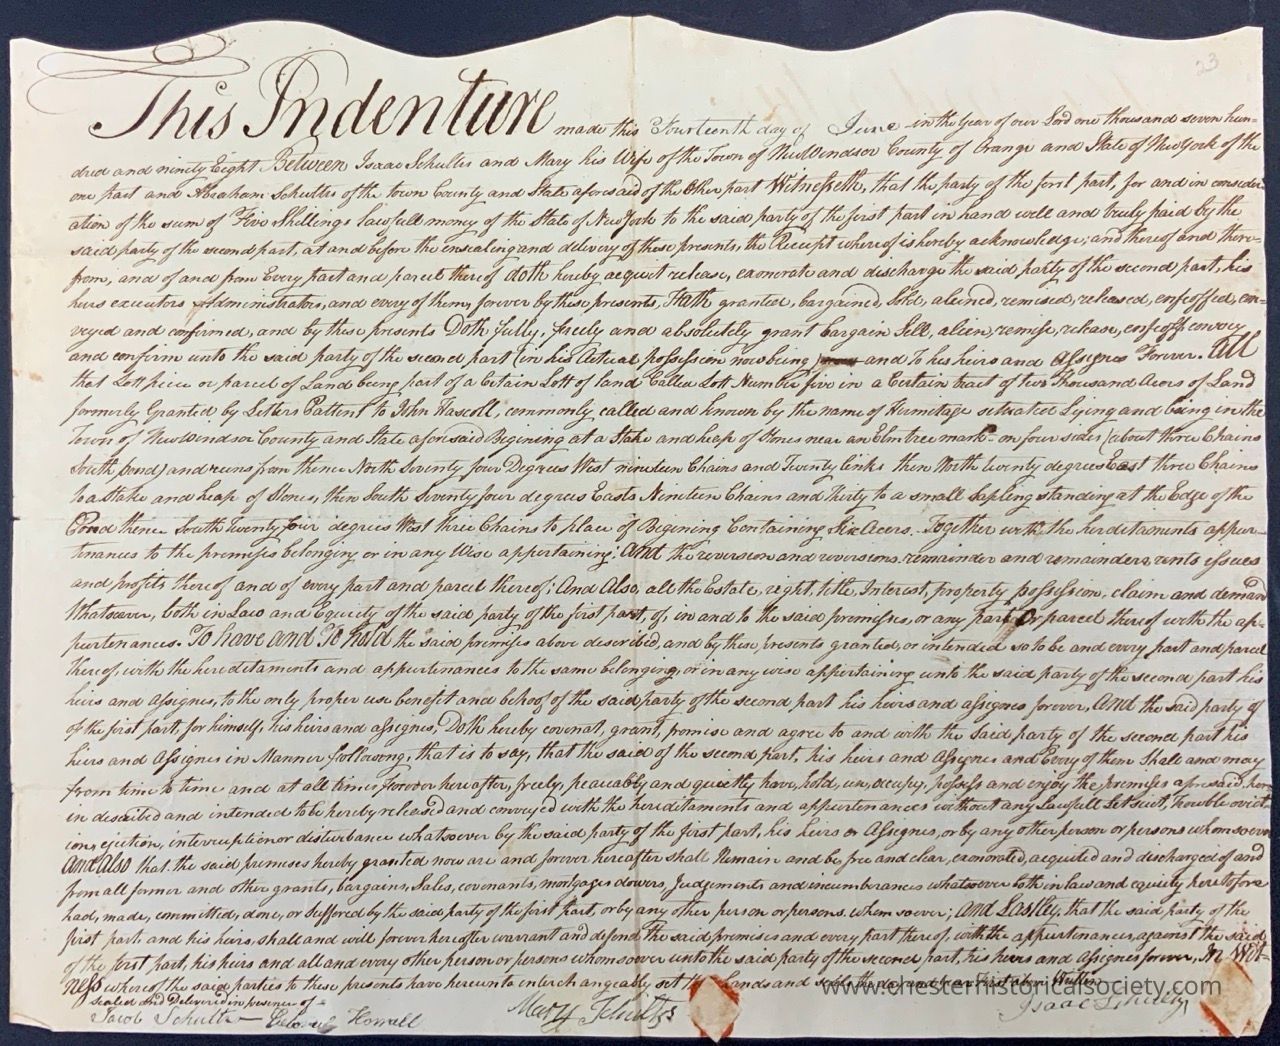 23
This Indenture made this Fourteenth day of June in the Year of our Lord one thousand seven hun=
dred and ninety Eight Between Isaac Schultes and Mary his Wife of the Town of NewWindsor County of Orange and State of NewYork of the
one part and Abraham Schultes of the town County and State aforesaid of the Other part Witnesseth, that the party of the first part, for and in consider
ation of the sum of Five Shillings lawfull money of the State of NewYork to the said party of the first part in hand well and truly paid by the
said party of the second part, at and before the ensealing and delivery of these presents, the Receipt whereof is hereby acknowledge; and thereof and there=
from, and of and from Every part and parcel thereof doth hereby acquit release, exonerate and discharge the said party of the second part, his
heirs executors Administrators, and every of them, forever by these presents, Hath granted, bargained, Sold, aliened, remised, released, enfeoffed, con=
veyed and confirmed, and by these presents Doth fully, freely and absolutely grant bargain Sell, alien, remise, release, enfeoff convey
and confirm unto the said party of the second part (in his Actual possession now being) and To his heirs and Assignes Forever. All
that Lott piece or parcel of Land being part of a Certain Lott of land Called Lott Number five in a Certain tract of two Thousand Acers of Land
formerly Granted by Letters Pattent to John Hascoll, commonly called and known by the name of Hermitage situated Lying and being in the
Town of NewWindsor County and State aforesaid Begining at a Stake and heap of Stones near an Elm tree mark on four sides (about three Chains
South Pond) and runs from thence North Seventy four Degrees West nineteen Chains and Twenty links then North twenty degrees East three Chains
to a Stake and heap of Stones, then South Seventy four degrees Easts Nineteen Chains and thirty to a small Sapling standing at the Edge of the
Pond thence South Twenty four degrees West three Chains to place of Begining Containing Six Acers. Together with the herditaments appur=
tinances to the premises belonging or in any Wise appertaining: And the reversion and reversions. remainder and remainders, rents issues
and profits thereof and of every part and parcel thereof; And Also, all the Estate, right, title, Interest, property possession, claim and demand
Whatsoever, both in Law and Equity of the said party of the first part, of, in and to the said premises, or any part Or parcel thereof with the ap=
purtenances. To have and To hold the said premises above described, and by these presents granted, or intended so to be and every part and parcel
thereof, with the hereditaments and appurtenances to the same belonging, or in any wise appertaining unto the said party of the second part his
heirs and assignes, to the only proper use benefit and behoof of the said party of the second part his heirs and assignes forever, And the said party of
of the first part, for himself, his heirs and assignes, Doth hereby covenat, grant, promise and agree to and with the Said party of the second part his
heirs and Assignes in Manner following, that is to say, that the said of the second part, his heirs and Assignes and Every of them Shall and may
from time to time and at all times Forever hereafter, freely, peaceably and quietly have, hold, use, occupy, possess and enjoy the premises aforesaid here
in described and intended to be hereby released and conveyed with the hereditaments and appurtenances without any Lawfull Let suit, trouble evict
ion, ejection, interruption or disturbance whatsoever by the said party of the first part, his heirs or Assignes, or by any other person or persons whomsoever
And Also that the said premises hereby granted now are and forever hereafter shall Remain and be free and clear, exonorated, acquited and discharged of and
from all former and other grants, bargains, Sales, covenants, mortgages dowers, Judgements and incumberances whatsoever both in law and equity heretofore
had, made, committed, done, or Suffered by the said party of the first part, or by any other person or persons. whom soever; And Lastley, that the said party of the
first part and his heirs, shall and will forever hereafter warrant and defend the said premises and every part thereof, with the appurtenances, against the said
of the first part, his heirs and all and every other person or persons whomsoever unto the said party of the second part, his heirs and assignes forever, In Wit=
ness whereof the said parties to these presents have hereunto interchangeably set their hands and seals the day and year first above Written
Sealed And Delivered in presence of
Jacob Schultz Howell Mary Schultes Isaac Schultz
www.chesterhistoricalsociety.com